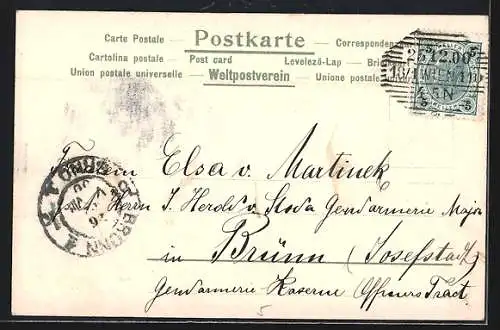 Carte Postale — Postkarte — Correspondenz
Cartolina postale — Post card — Levelező-Lap — Bri
Union postale universelle — Weltpostverein — Unione postale
25 12.00
WIEN
5 N
5 5
BRÜNN
BRNO
Fräulein Elsa v. Martinek
Herrn J. Herold v. Stoda Gendarmerie Major
in Brünn (Josefstadt)
Gendarmerie Kaserne Offiziers Tract.
5